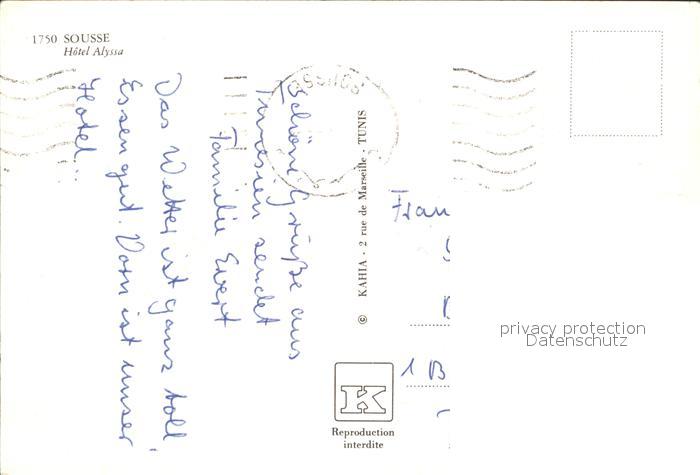 1750 SOUSSE
Hôtel Alyssa
SOUSSE
Schöne Grüße aus
Tunesien sendet
Familie Evert
Das Wetter ist ganz toll
Essen gut. Vorn ist unser
Hotel!!
© KAHIA - 2 rue de Marseille - TUNIS
Frau
1 B
privacy protection
Datenschutz
K
Reproduction
interdite